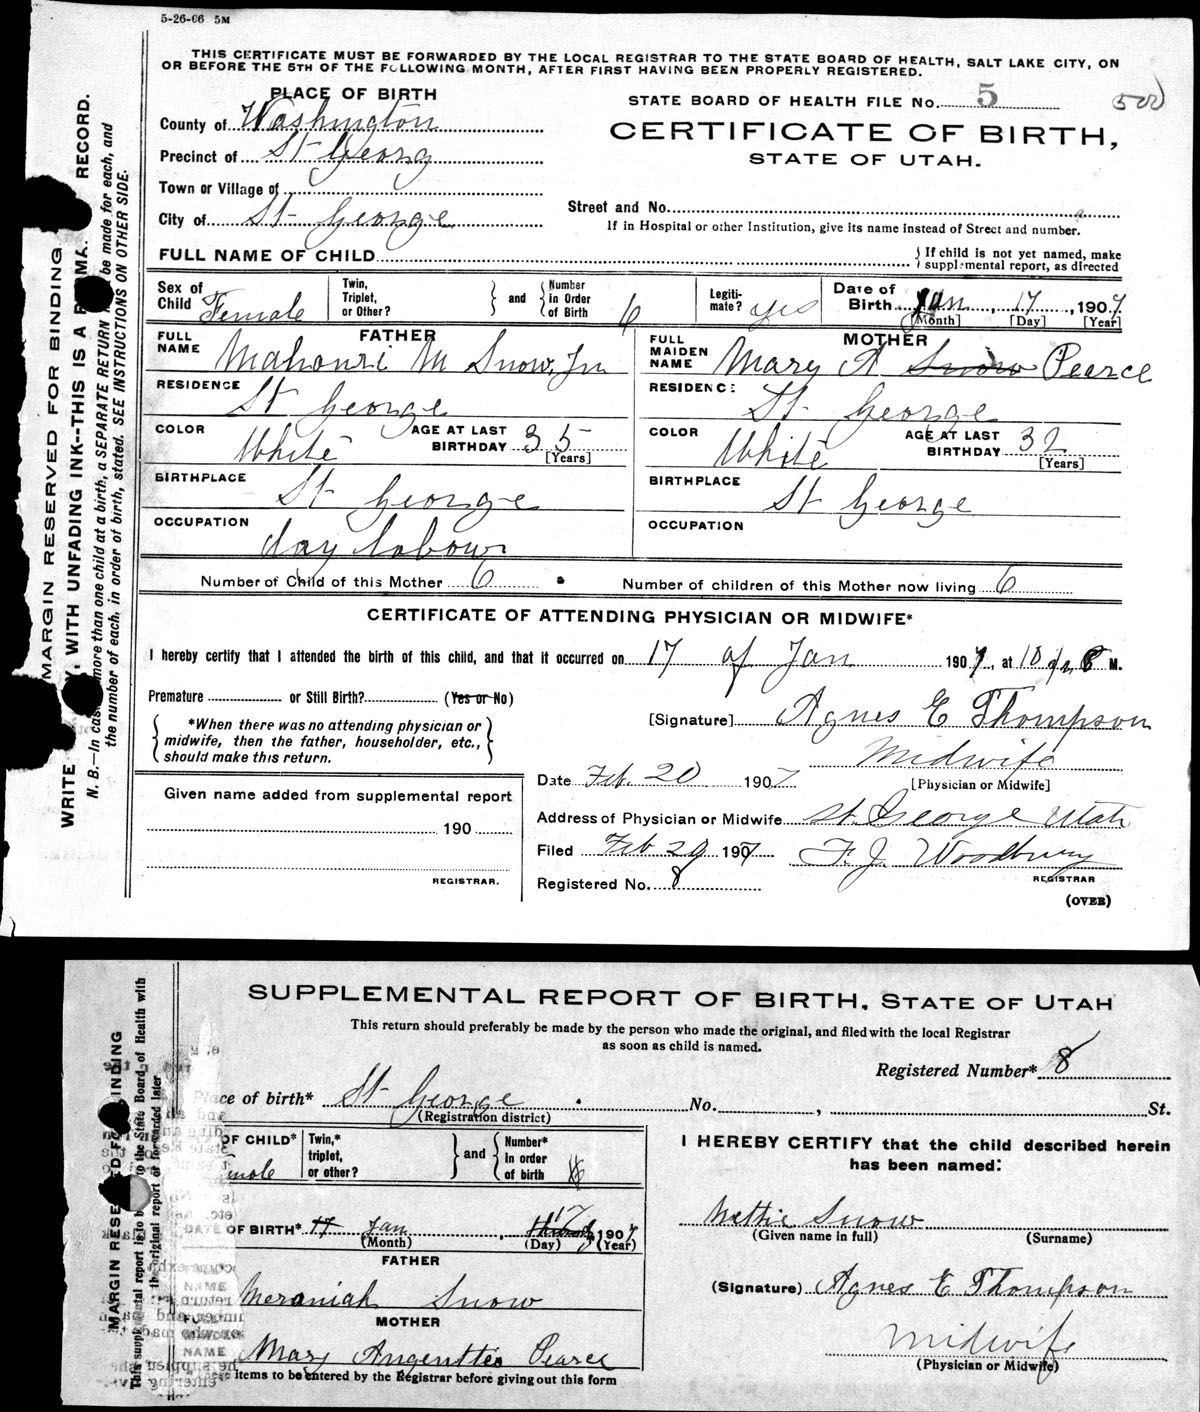 5-26-06 5M
THIS CERTIFICATE MUST BE FORWARDED BY THE LOCAL REGISTRAR TO THE STATE BOARD OF HEALTH, SALT LAKE CITY, ON
OR BEFORE THE 5TH OF THE FOLLOWING MONTH, AFTER FIRST HAVING BEEN PROPERLY REGISTERED.
PLACE OF BIRTH
STATE BOARD OF HEALTH FILE No. 5
County of Washington
CERTIFICATE OF BIRTH,
STATE OF UTAH.
Precinct of St Georg
Town or Village of
City of St George
Street and No.
If in Hospital or other Institution, give its name instead of Street and number.
FULL NAME OF CHILD
If child is not yet named, make
supplemental report, as directed
Sex of Child Female
Twin, Triplet, or Other?
and
Number in Order of Birth 6
Legitimate? yes
Date of Birth Jan, 17, 1907
[Month] [Day] [Year]
FATHER
FULL NAME Mahonri M Snow, Jn
RESIDENCE St George
COLOR White
AGE AT LAST BIRTHDAY 35 [Years]
BIRTHPLACE St George
OCCUPATION day labour
MOTHER
FULL MAIDEN NAME Mary A Snow Pearce
RESIDENCE: St George
COLOR White
AGE AT LAST BIRTHDAY 32 [Years]
BIRTHPLACE St George
OCCUPATION
Number of Child of this Mother 6
Number of children of this Mother now living 6
CERTIFICATE OF ATTENDING PHYSICIAN OR MIDWIFE*
I hereby certify that I attended the birth of this child, and that it occurred on 17 of Jan 1907, at 10 M.
Premature or Still Birth? (Yes or No)
*When there was no attending physician or
midwife, then the father, householder, etc.,
should make this return.
[Signature] Agnes E Thompson
Midwife
[Physician or Midwife]
Date Feb. 20 1907
Given name added from supplemental report
190
REGISTRAR.
Address of Physician or Midwife St. George Utah
Filed Feb 29 1907 F. J. Woodbury
REGISTRAR
Registered No. 8
(OVER)
MARGIN RESERVED FOR BINDING
WRITE WITH UNFADING INK--THIS IS A RECORD.
N. B.—In case more than one child at a birth, a SEPARATE RETURN be made for each, and
the number of each, in order of birth, stated. SEE INSTRUCTIONS ON OTHER SIDE.
SUPPLEMENTAL REPORT OF BIRTH, STATE OF UTAH
This return should preferably be made by the person who made the original, and filed with the local Registrar
as soon as child is named.
Registered Number* 8
Place of birth* St George No. , St.
(Registration district)
OF CHILD* Female
Twin,* triplet, or other?
and
Number* in order of birth 6
I HEREBY CERTIFY that the child described herein
has been named:
DATE OF BIRTH* 17 Jan, 17 1907
(Month) (Day) (Year)
Nettie Snow
(Given name in full) (Surname)
FATHER
NAME Meraniah Snow
(Signature) Agnes E Thompson
MOTHER
NAME Mary Angenttie Pearce
Midwife
(Physician or Midwife)
items to be entered by the Registrar before giving out this form
MARGIN RESERVED FOR BINDING
This supplemental report is to be to the State Board of Health with
the original report or forwarded later